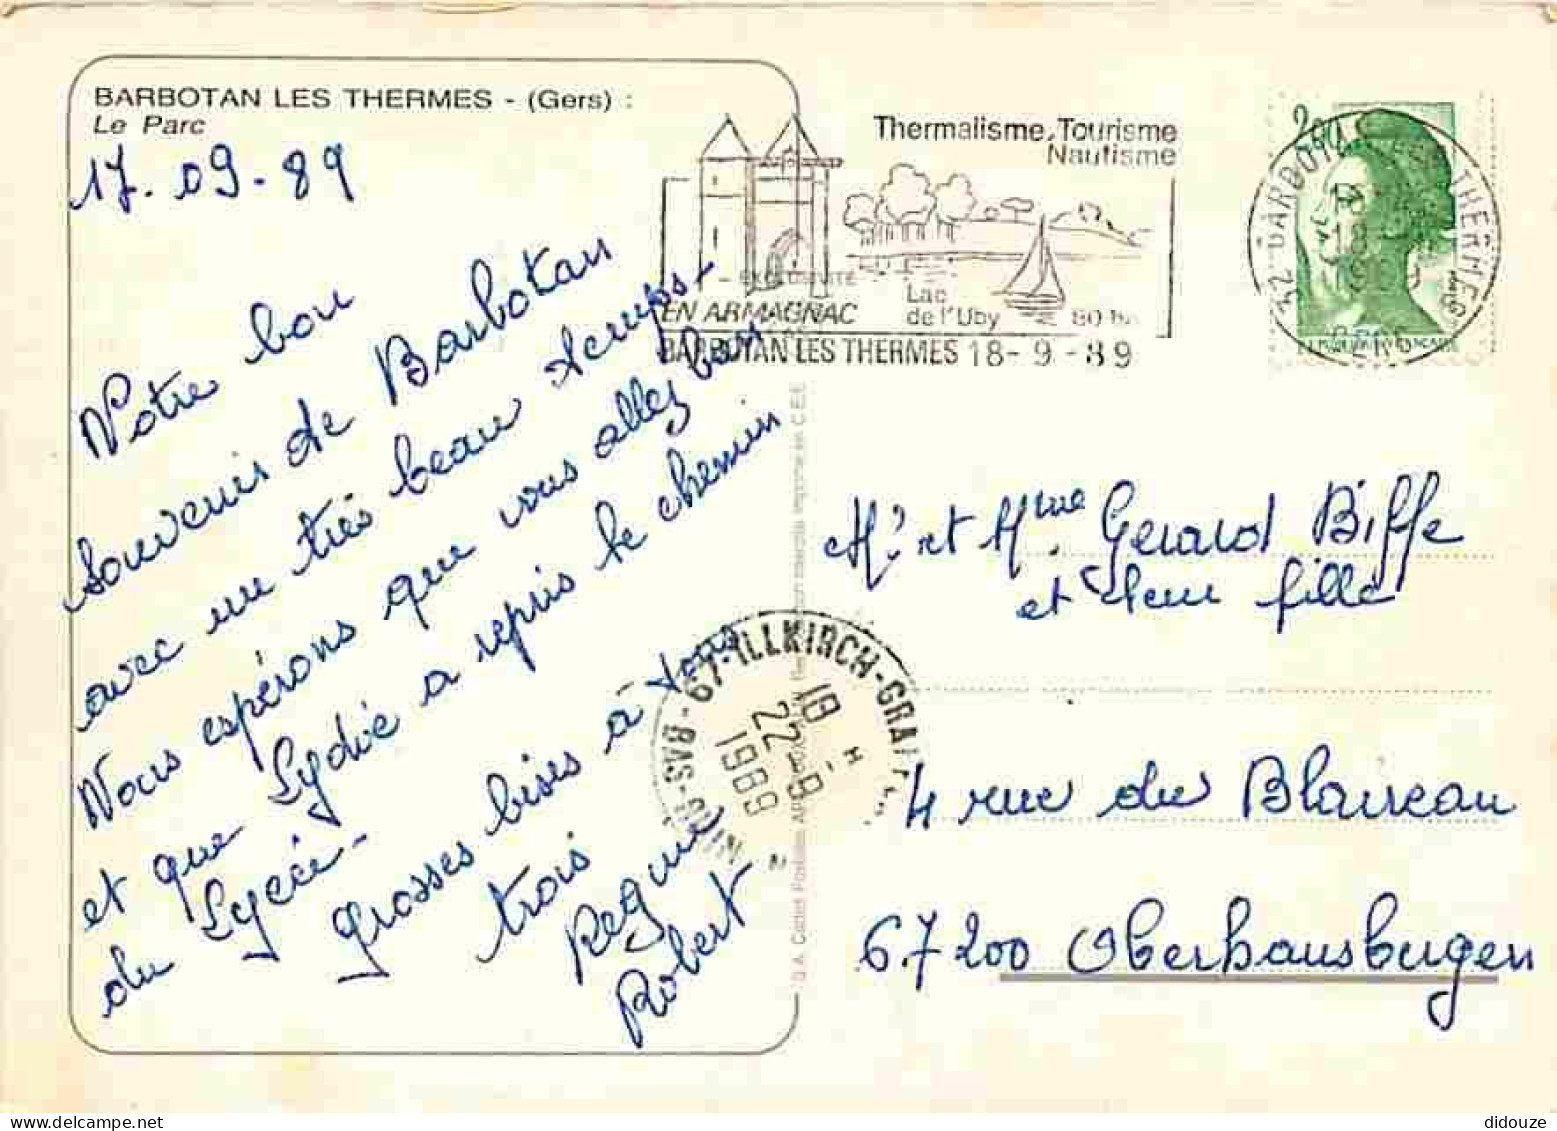 BARBOTAN LES THERMES - (Gers) :
Le Parc
17. 09 - 89
Notre bon
souvenir de Barbotan
avec un très beau temps -
Nous espérons que vous allez bien
et que Lydie a repris le chemin
du Lycée -
grosses bises à tous
trois
Regine
Robert
Thermalisme, Tourisme
Nautisme
EN ARMAGNAC
Lac
de l'Uby
BARBOTAN LES THERMES 18 - 9 - 89
2,00
32 BARBOTAN LES THERMES
GERS
67-ILLKIRCH-GRAF
BAS-RHIN
18 H
22-9
1989
Mr et Mme Gerard Biffe
et leur fille
4 rue du Blaireau
67200 Oberhausbergen
didouze